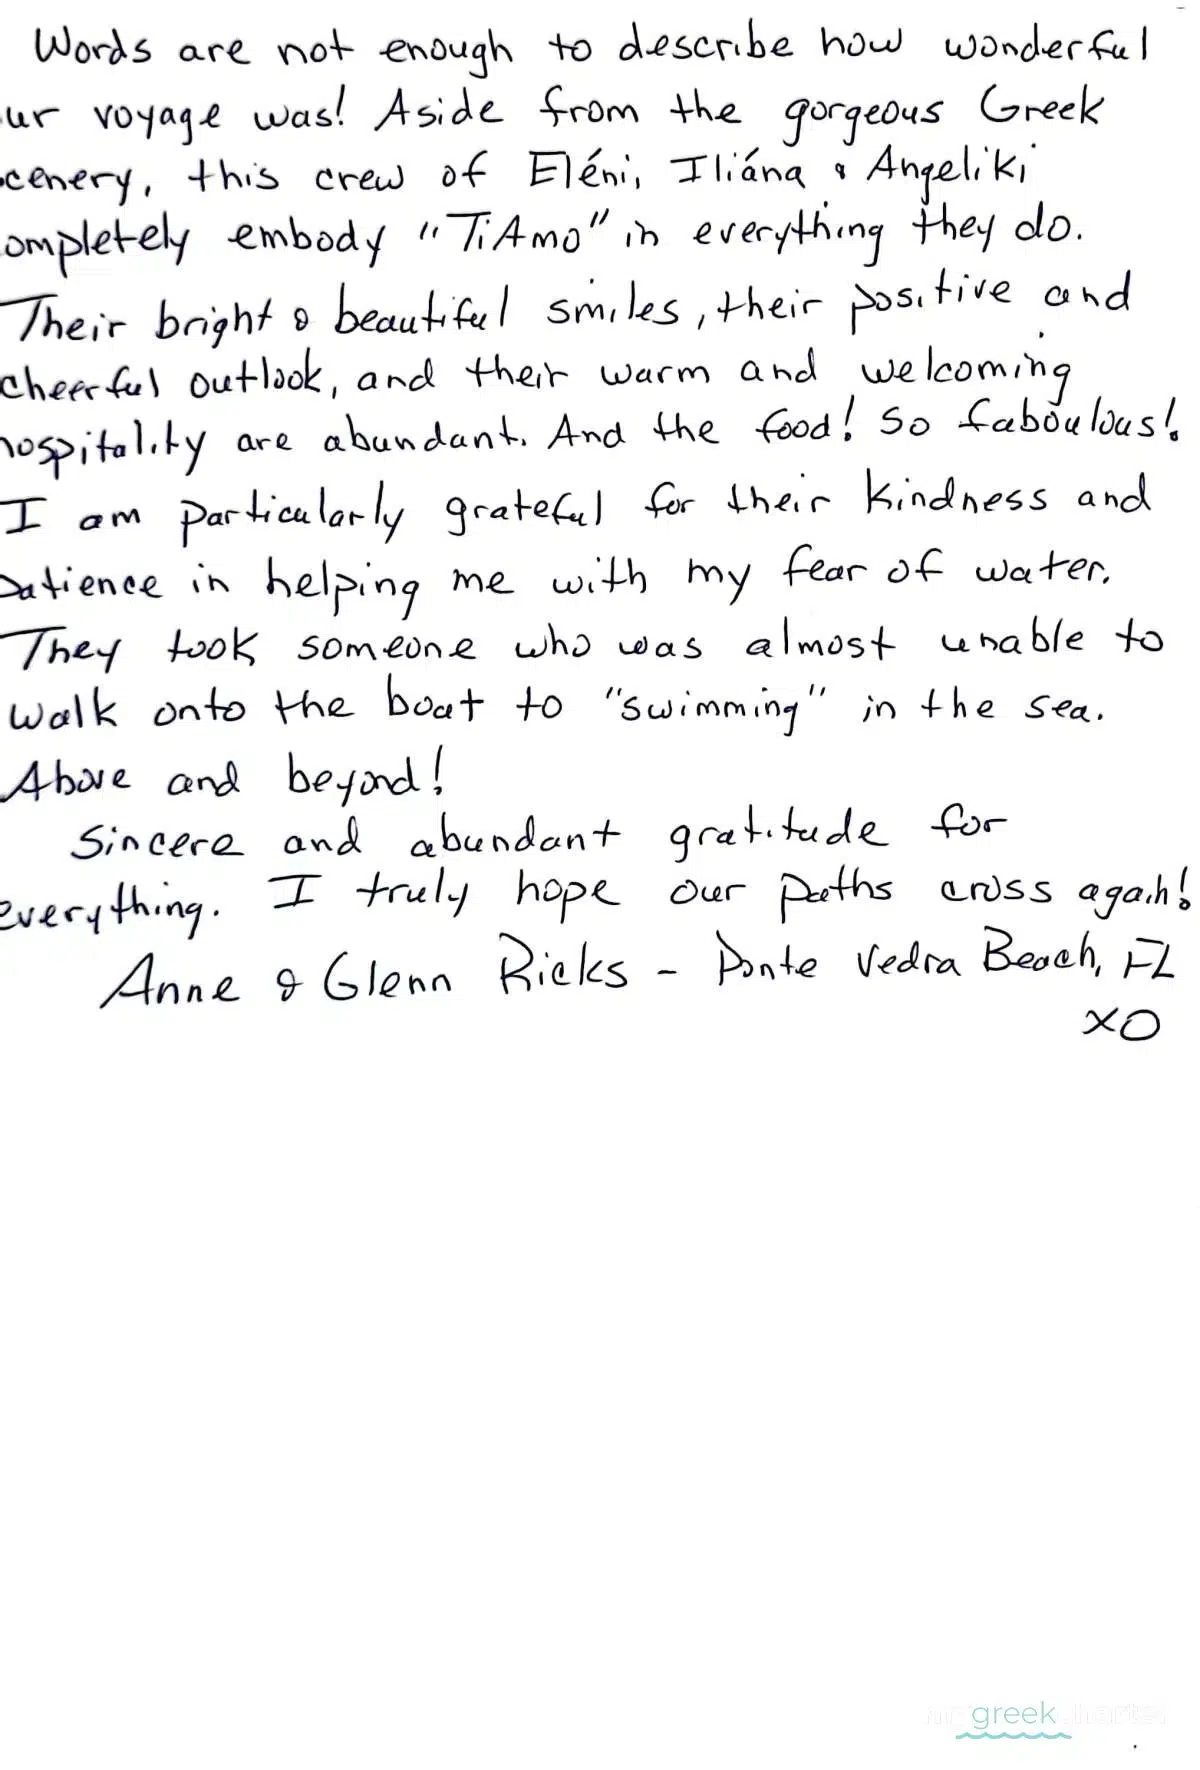 Words are not enough to describe how wonderful
ur voyage was! Aside from the gorgeous Greek
cenery, this crew of Eléni, Iliána & Angeliki
ompletely embody "TiAmo" in everything they do.
Their bright & beautiful smiles, their positive and
cheerful outlook, and their warm and welcoming
hospitality are abundant. And the food! So faboulous!
I am particularly grateful for their kindness and
patience in helping me with my fear of water.
They took someone who was almost unable to
walk onto the boat to "swimming" in the sea.
Above and beyond!
Sincere and abundant gratitude for
everything. I truly hope our paths cross again!
Anne & Glenn Ricks - Ponte Vedra Beach, FL
XO
my greek charter